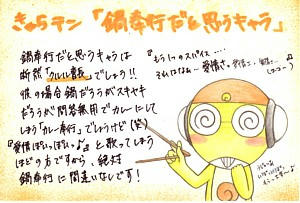 きゅうテン「鍋奉行だと思うキャラ」
鍋奉行だと思うキャラは
断然「クルル曹長」でしょう!!
彼の場合鍋だろうがスキヤキ
だろうが問答無用でカレーにして
しまう「カレー奉行」でしょうけど(笑)
『愛情ぽいっぽいっ♪』と歌ってしまう
ほどの方ですから、絶対
鍋奉行に間違いなしです!
『もう1つのスパイス・・・・
それはなぁ…愛情さ。